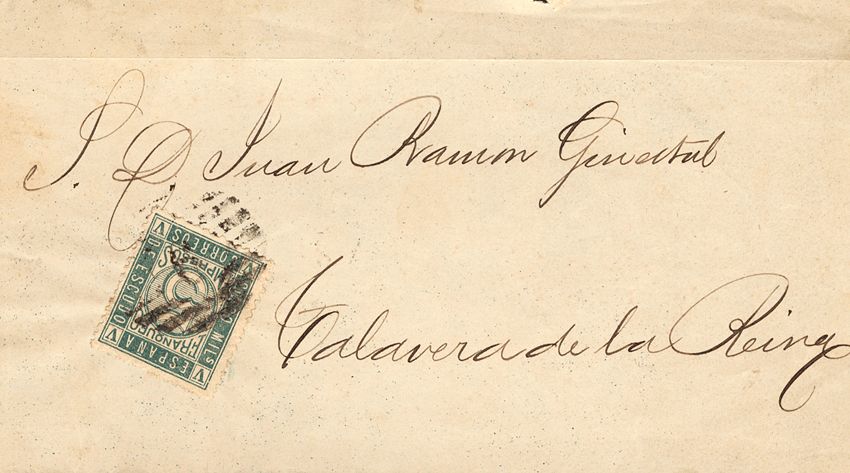 S. D. Juan Ramon Ginestal
Talavera de la Reina
CORREOS
V
DE ESCUDO
V
ESPAÑA
V
MILS
FRANQUEO
IMPRESOS